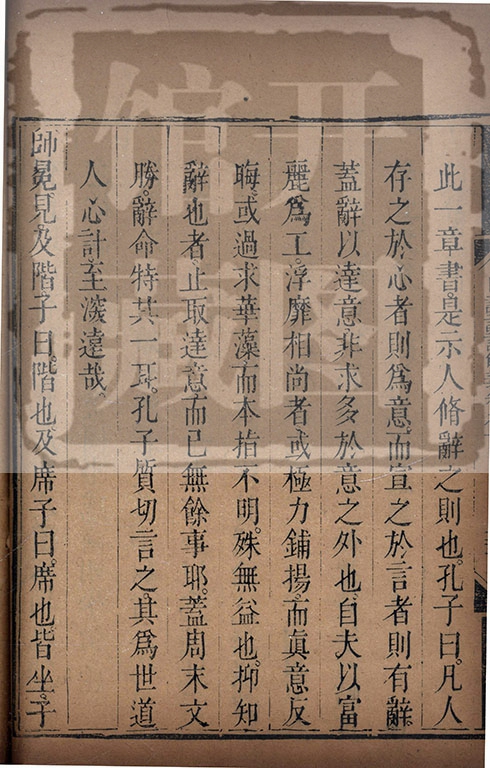 此一章書是示人脩辭之則也孔子曰凡人
存之於心者則爲意而宣之於言者則有辭
蓋辭以達意非求多於意之外也自夫以富
麗爲工浮靡相尚者或極力鋪揚而眞意反
晦或過求華藻而本指不明殊無益也抑知
辭也者止取達意而已無餘事耶蓋周末文
勝辭命特其一耳孔子質切言之其爲世道
人心計至深遠哉
師冕見及階子曰階也及席子曰席也皆坐子